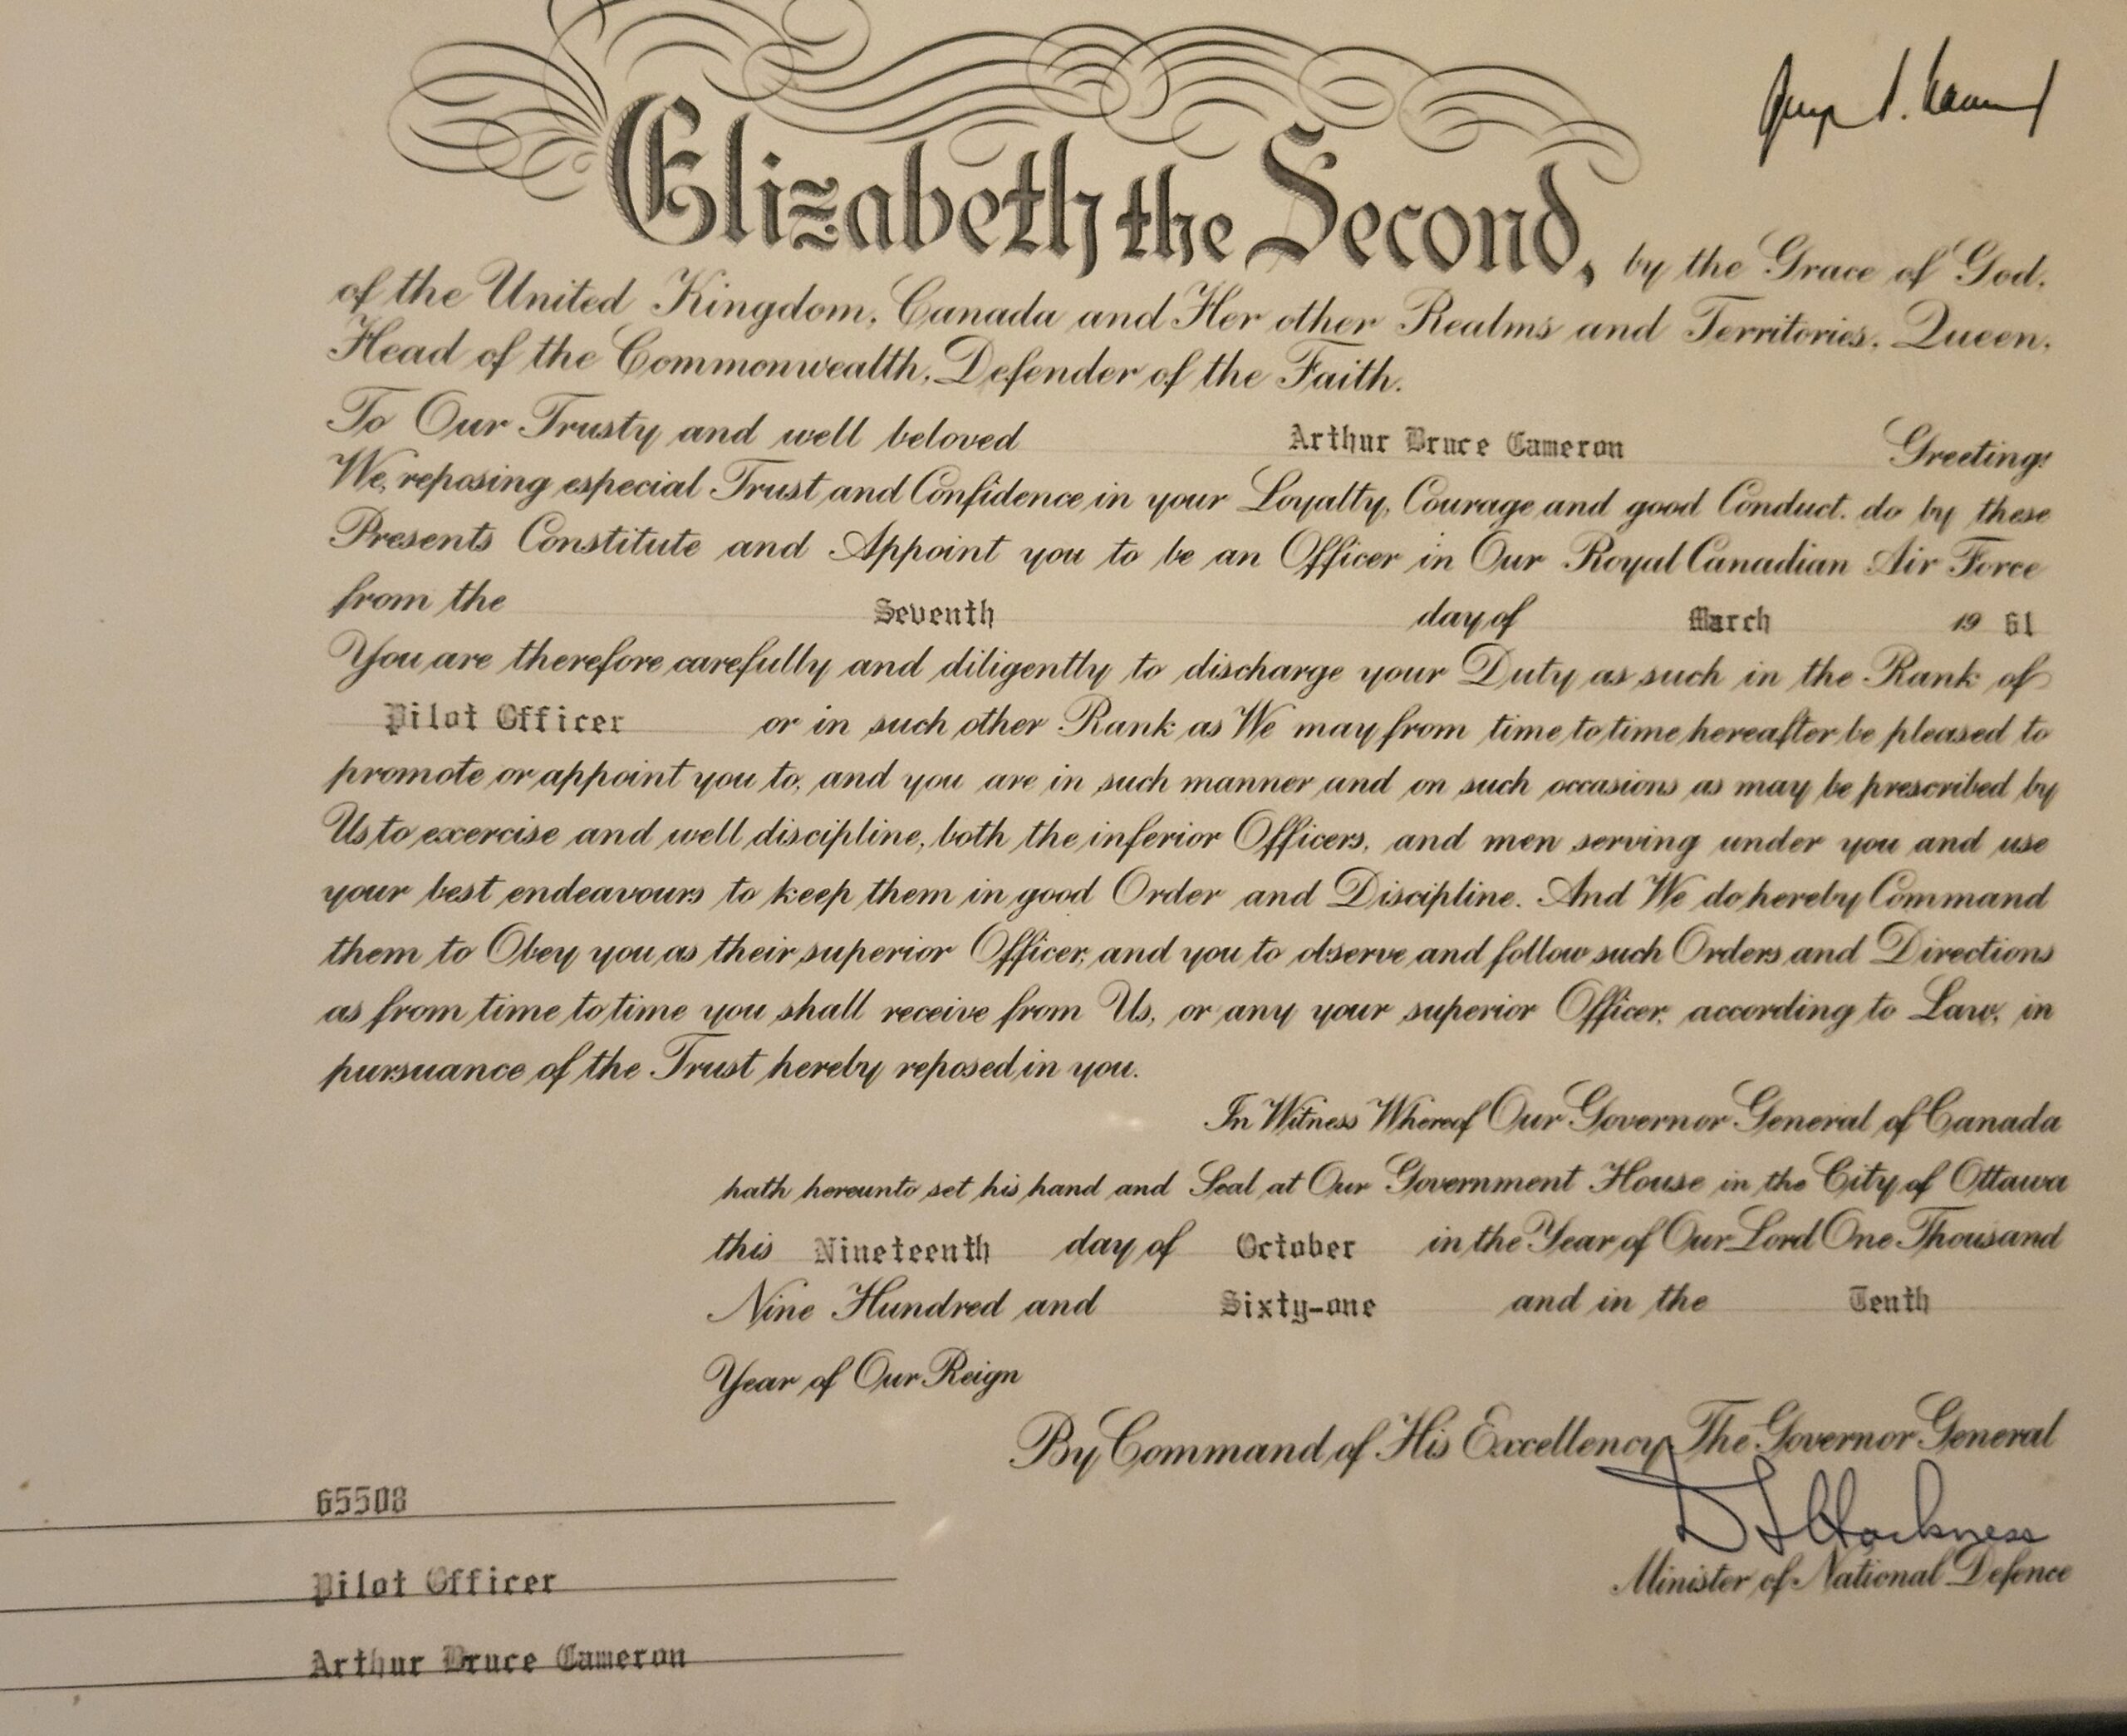 Elizabeth the Second, by the Grace of God,
of the United Kingdom, Canada and Her other Realms and Territories, Queen,
Head of the Commonwealth, Defender of the Faith.
To Our Trusty and well beloved Arthur Bruce Cameron Greeting:
We, reposing especial Trust and Confidence in your Loyalty, Courage and good Conduct, do by these
Presents Constitute and Appoint you to be an Officer in Our Royal Canadian Air Force
from the Seventh day of March 19 61
You are therefore carefully and diligently to discharge your Duty as such in the Rank of
Pilot Officer or in such other Rank as We may from time to time hereafter be pleased to
promote or appoint you to, and you are in such manner and on such occasions as may be prescribed by
Us to exercise and well discipline, both the inferior Officers, and men serving under you and use
your best endeavours to keep them in good Order and Discipline. And We do hereby Command
them to Obey you as their superior Officer, and you to observe and follow such Orders and Directions
as from time to time you shall receive from Us, or any your superior Officer, according to Law, in
pursuance of the Trust hereby reposed in you.
In Witness Whereof Our Governor General of Canada
hath hereunto set his hand and Seal at Our Government House in the City of Ottawa
this Nineteenth day of October in the Year of Our Lord One Thousand
Nine Hundred and Sixty-one and in the Tenth
Year of Our Reign
By Command of His Excellency The Governor General
D S Harkness
Minister of National Defence
65508
Pilot Officer
Arthur Bruce Cameron